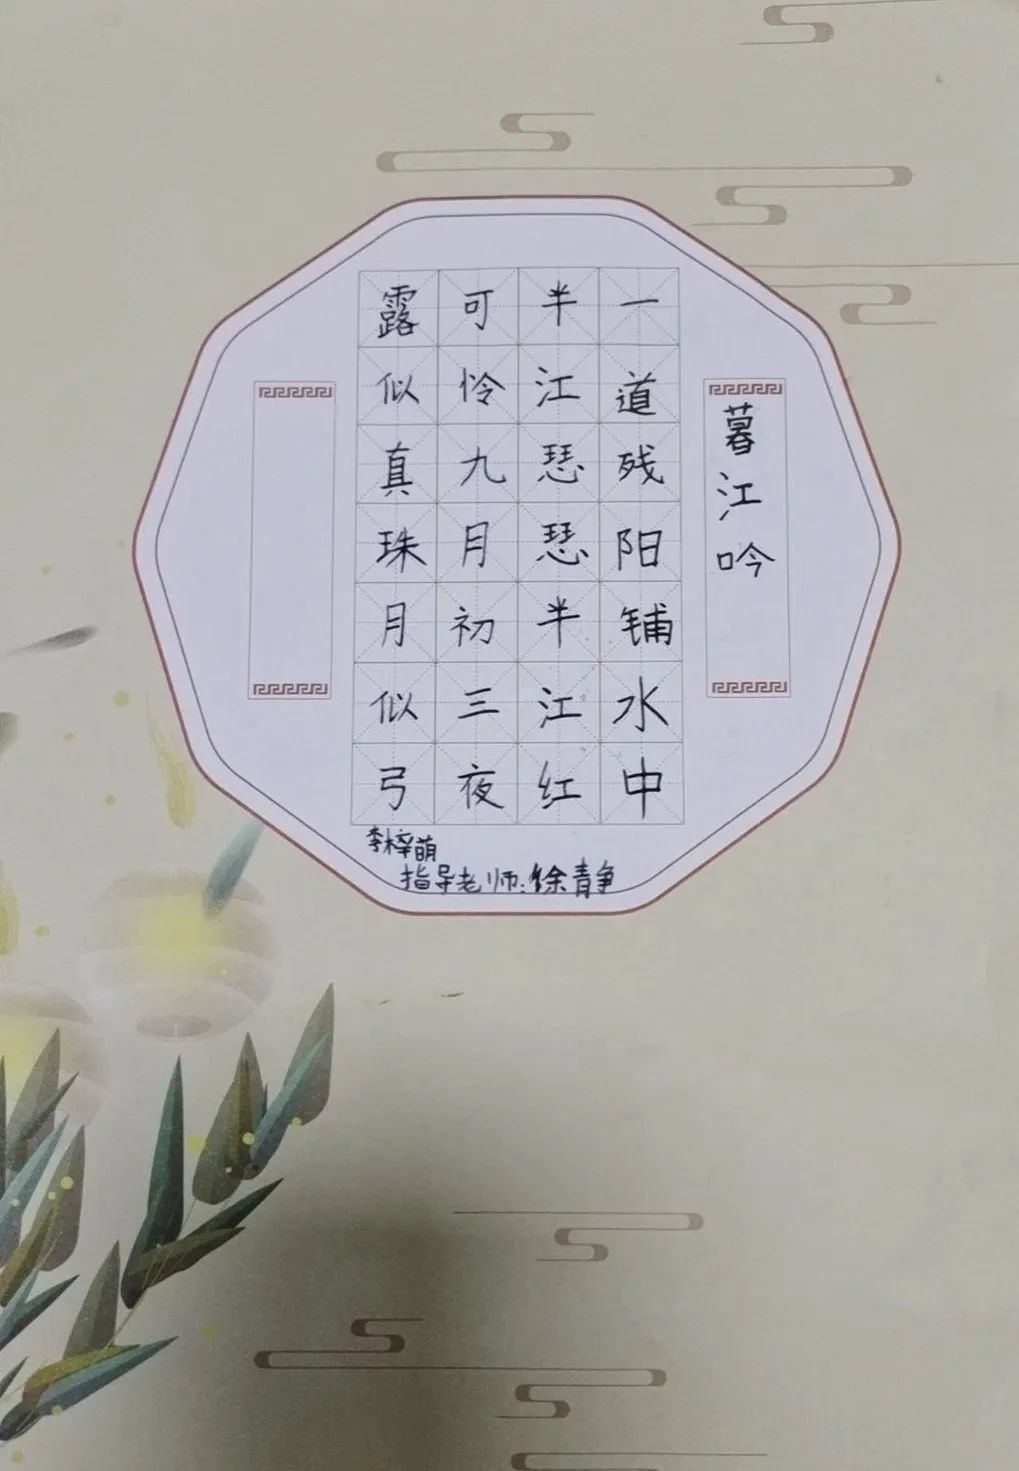 暮江吟
一道残阳铺水中
半江瑟瑟半江红
可怜九月初三夜
露似真珠月似弓
李梓萌
指导老师:徐青争